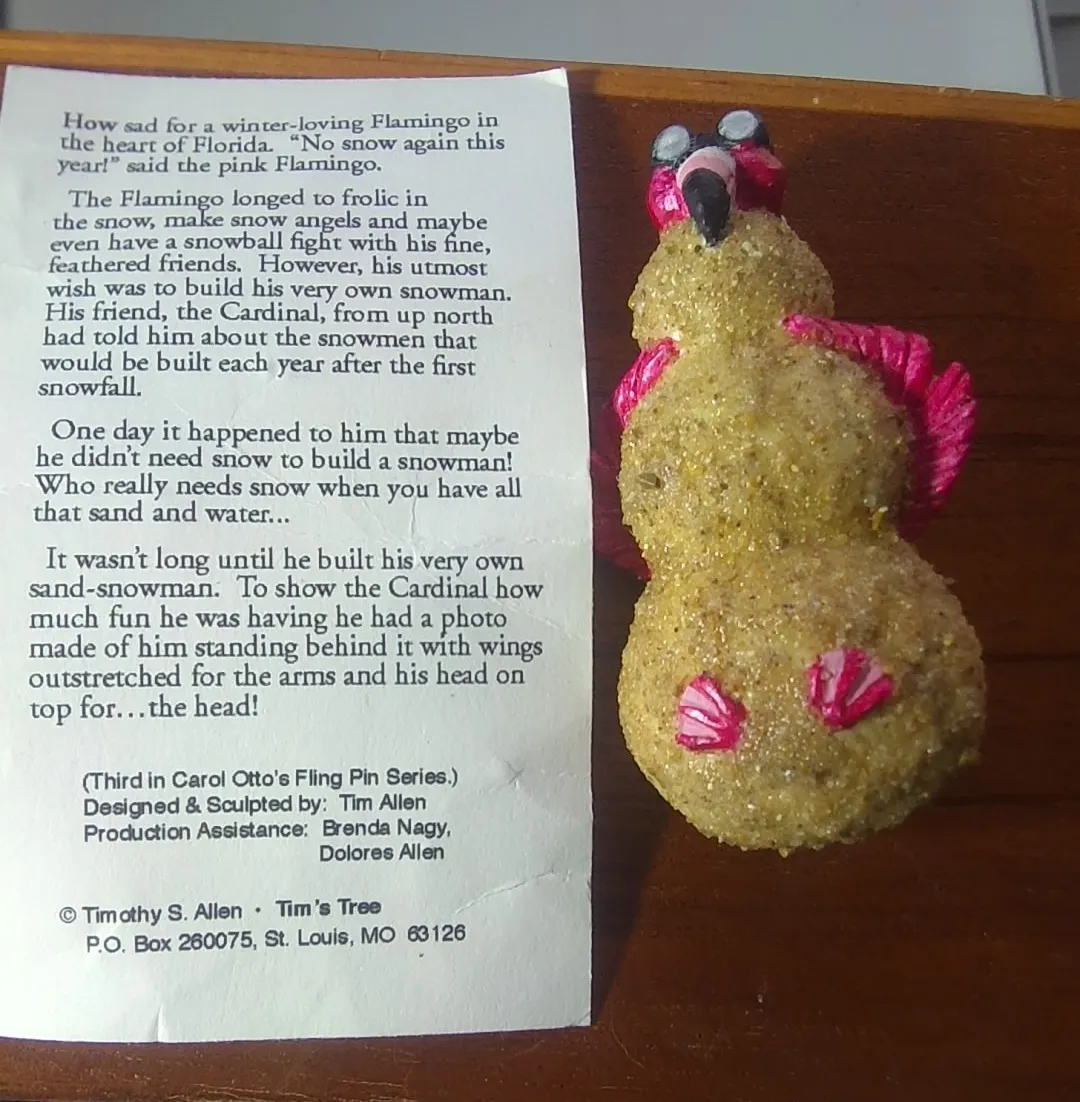 How sad for a winter-loving Flamingo in
the heart of Florida. “No snow again this
year!” said the pink Flamingo.
The Flamingo longed to frolic in
the snow, make snow angels and maybe
even have a snowball fight with his fine,
feathered friends. However, his utmost
wish was to build his very own snowman.
His friend, the Cardinal, from up north
had told him about the snowmen that
would be built each year after the first
snowfall.
One day it happened to him that maybe
he didn't need snow to build a snowman!
Who really needs snow when you have all
that sand and water...
It wasn't long until he built his very own
sand-snowman. To show the Cardinal how
much fun he was having he had a photo
made of him standing behind it with wings
outstretched for the arms and his head on
top for...the head!
(Third in Carol Otto's Fling Pin Series.)
Designed & Sculpted by: Tim Allen
Production Assistance: Brenda Nagy,
Dolores Allen
© Timothy S. Allen · Tim's Tree
P.O. Box 260075, St. Louis, MO 63126